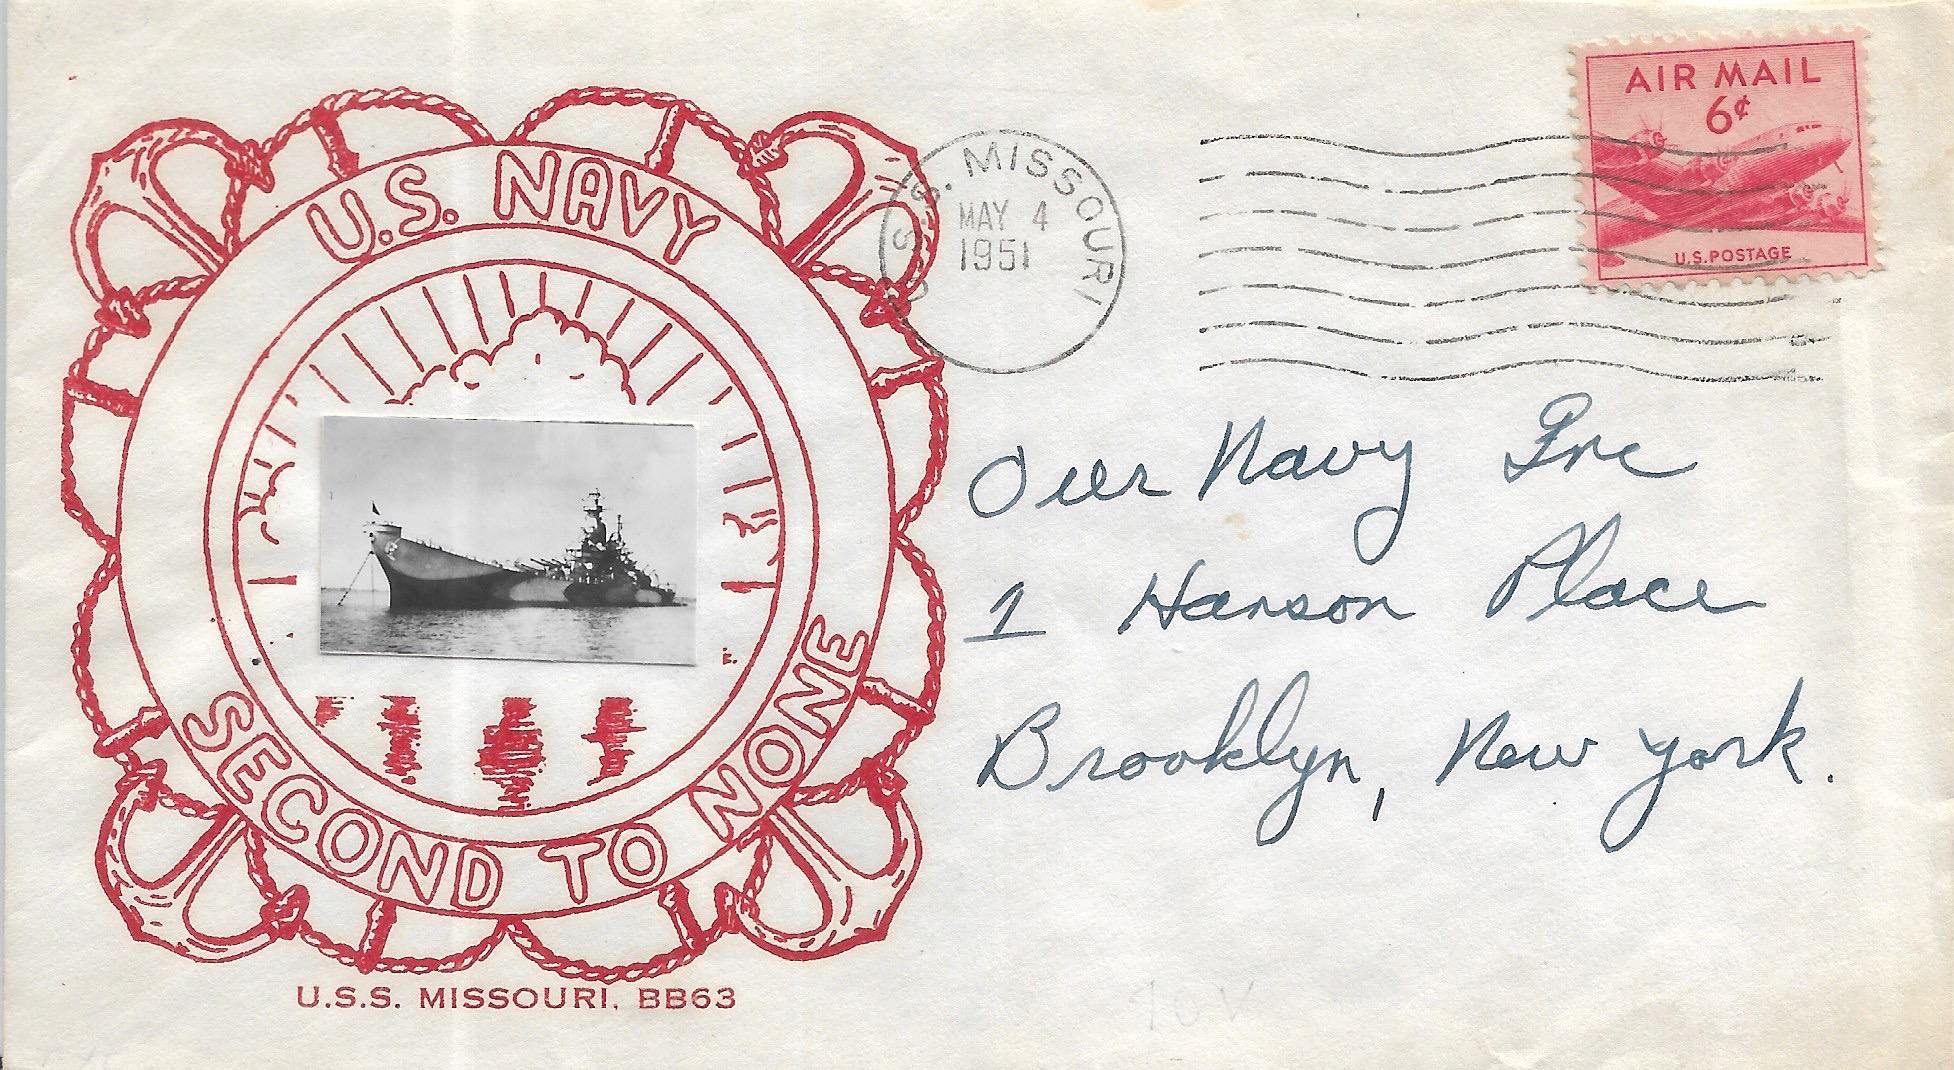 U.S. NAVY
SECOND TO NONE
U.S.S. MISSOURI, BB63
U.S.S. MISSOURI
MAY 4
1951
AIR MAIL
6¢
U.S. POSTAGE
Our Navy Inc
1 Hanson Place
Brooklyn, New York.